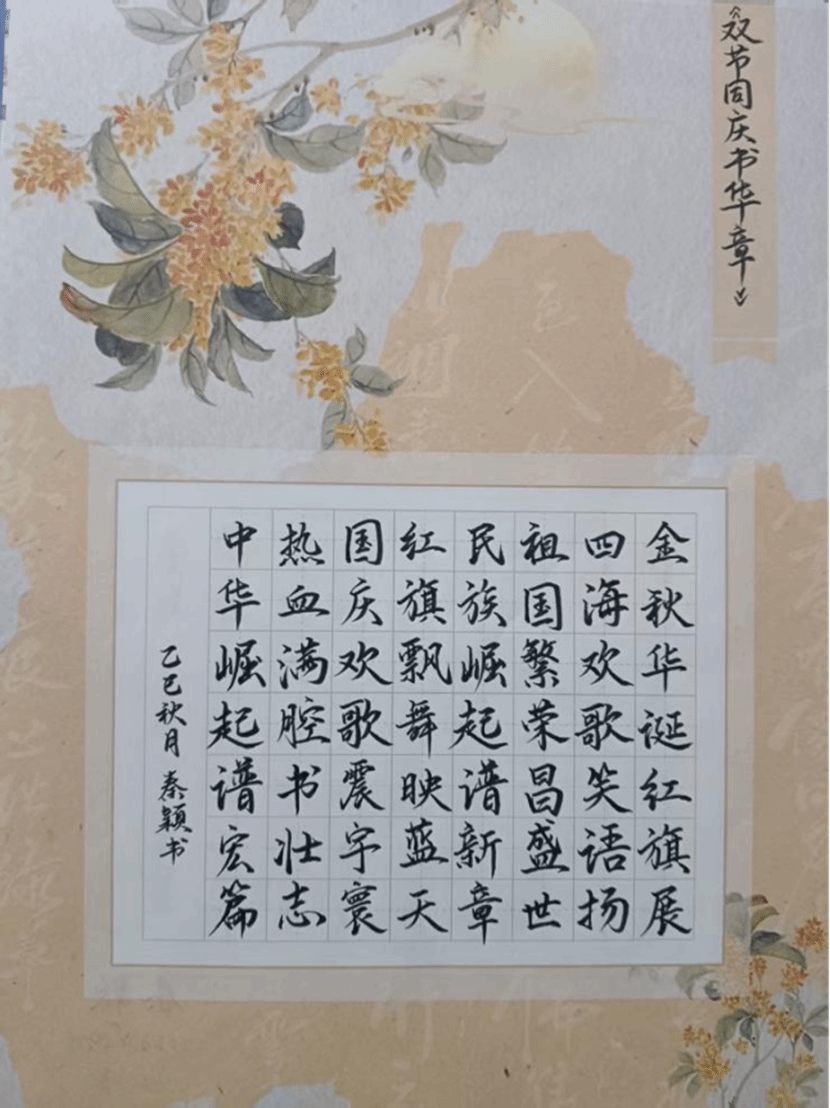 《双节同庆书华章》
金秋华诞红旗展
四海欢歌笑语扬
祖国繁荣昌盛世
民族崛起谱新章
红旗飘舞映蓝天
国庆欢歌震宇寰
热血满腔书壮志
中华崛起谱宏篇
乙巳秋月 秦颖书